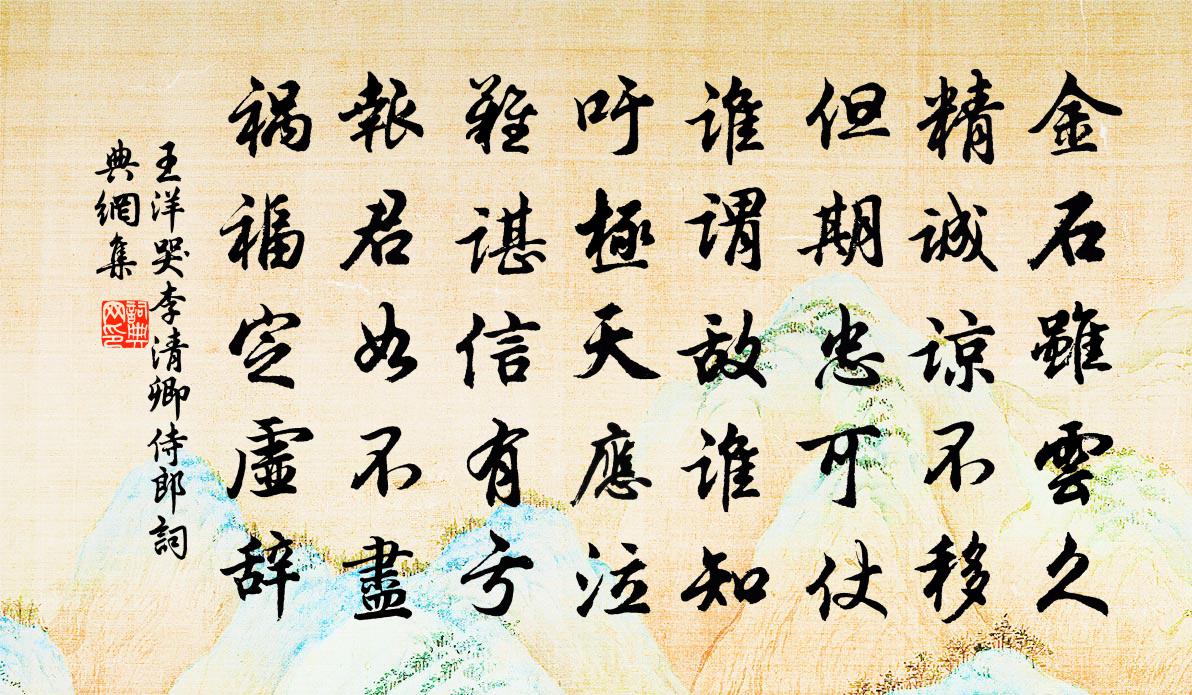 金石雖雲久
精誠諒不移
但期忠可仗
誰謂敌誰知
吁極天應泣
難諶信有亏
報君如不盡
禍福定虛辞
王洋哭李清卿侍郎詞
典網集
詞典